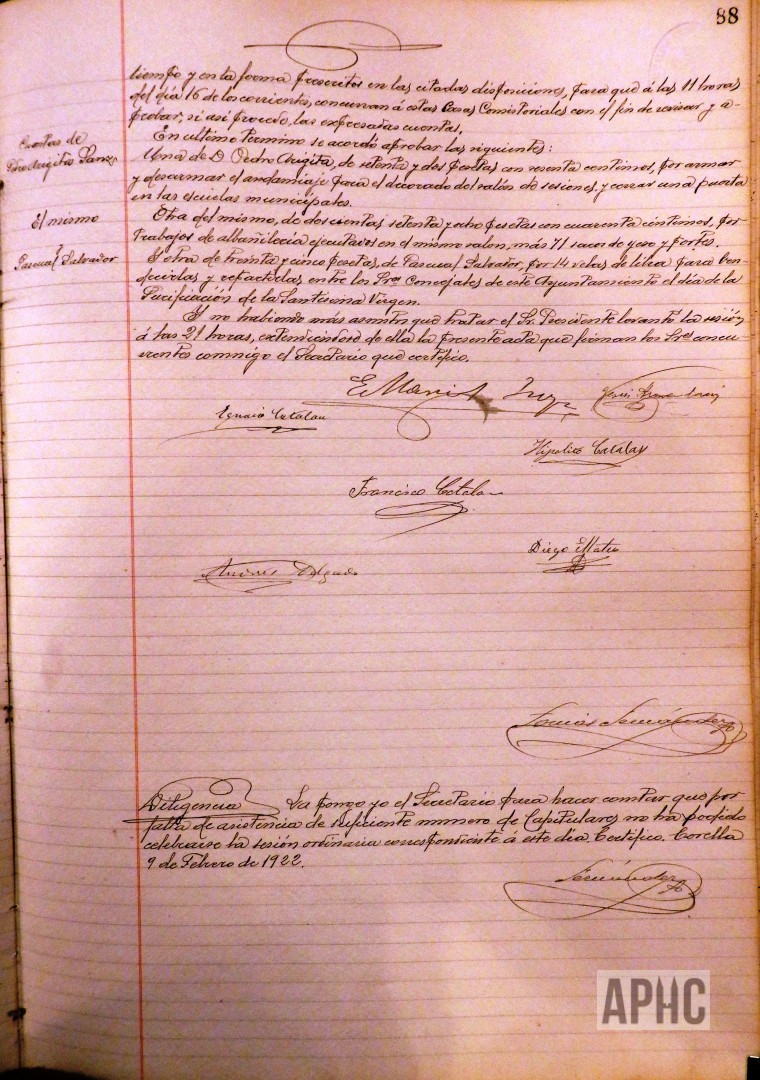 88
tiempo y en la forma prescritos en las citadas disposiciones, para que á las 11 horas
del día 16 de los corrientes, concurran á estas Casas Consistoriales con el fin de revisar y a-
probar, si asi procede, las expresadas cuentas.
Cuentas de
Pedro Angita Sanz
En ultimo termino se acordo aprobar las siguientes:
Una de D. Pedro Angita, de setenta y dos pesetas con sesenta centimos, por armar
y desarmar el andamiaje para el decorado del salón de sesiones, y cerrar una puerta
en las escuelas municipales.
El mismo
Otra del mismo, de doscientas setenta y ocho pesetas con cuarenta céntimos, por
trabajos de albañilería ejecutados en el mismo salon, más 71 sacos de yeso y portes.
Pascual Salvador
Y otra de treinta y cinco pesetas, de Pascual Salvador, por 14 velas de libra para ben-
decirlas y repartirlas entre los Sres Concejales de este Ayuntamiento el día de la
Purificación de la Santísima Virgen.
Y no habiendo más asuntos que tratar el Sr. Presidente levantó la sesión
á las 21 horas, extendiendose de ella la presente acta que firman los Sres concu-
rrentes conmigo el Secretario que certifico.
Ignacio Catalan
Hipolito Catalan
Francisco Catalan
Diego Mateo
Andrés Delgado
Diligencia La pongo yo el Secretario para hacer constar que por
falta de asistencia de suficiente numero de Capitulares no ha podido
celebrarse la sesión ordinaria correspondiente á este día. Certifico. Corella
9 de Febrero de 1922.
APHC